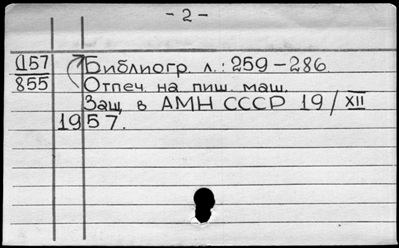 - 2 -
Д57 Библиогр. л.: 259-286.
855 Отпеч. на пиш. маш.
Защ. в АМН СССР 19/XII
1957.